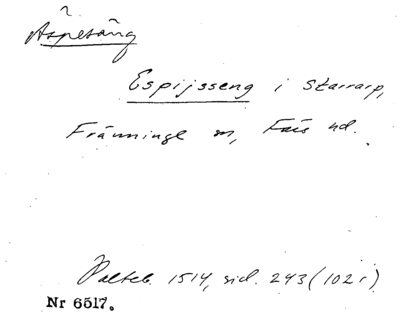 Äspesäng
Espijsseng i Starrarp,
Fränninge sn, Färs hd.
Palteb. 1514, sid. 243 (102 r)
Nr 6517.